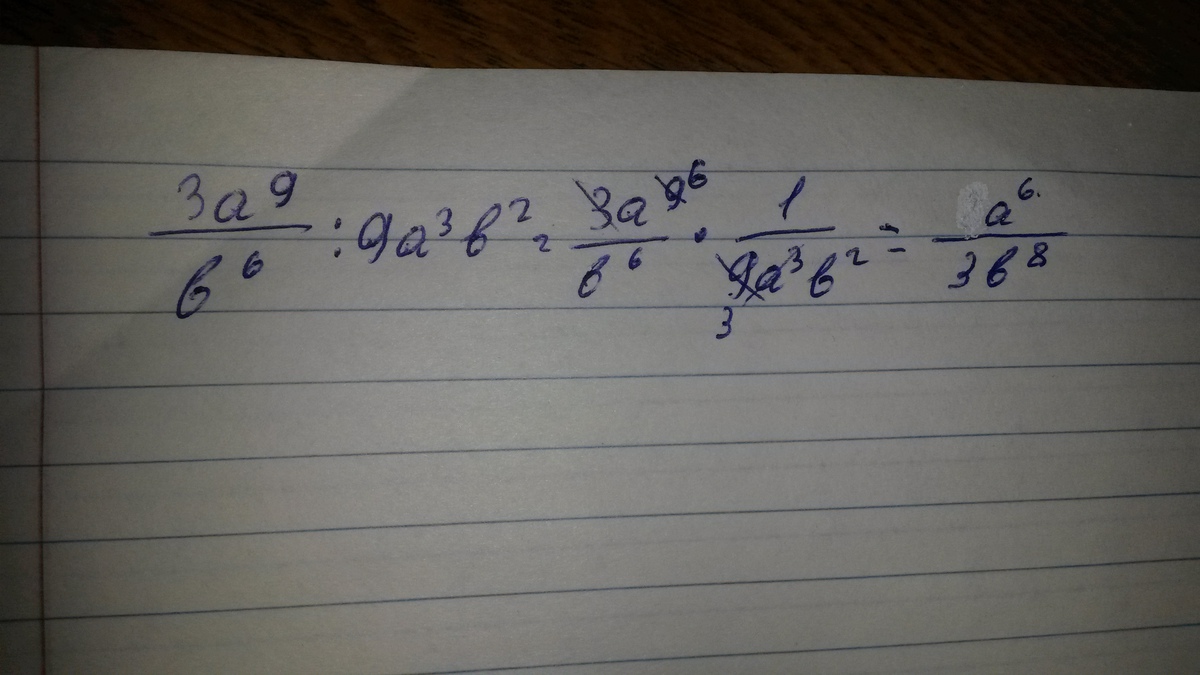 3a⁹/b⁶ : 9a³b² = 3a⁹ ⁶/b⁶ · 1/9a³b² = a⁶/3b⁸
3